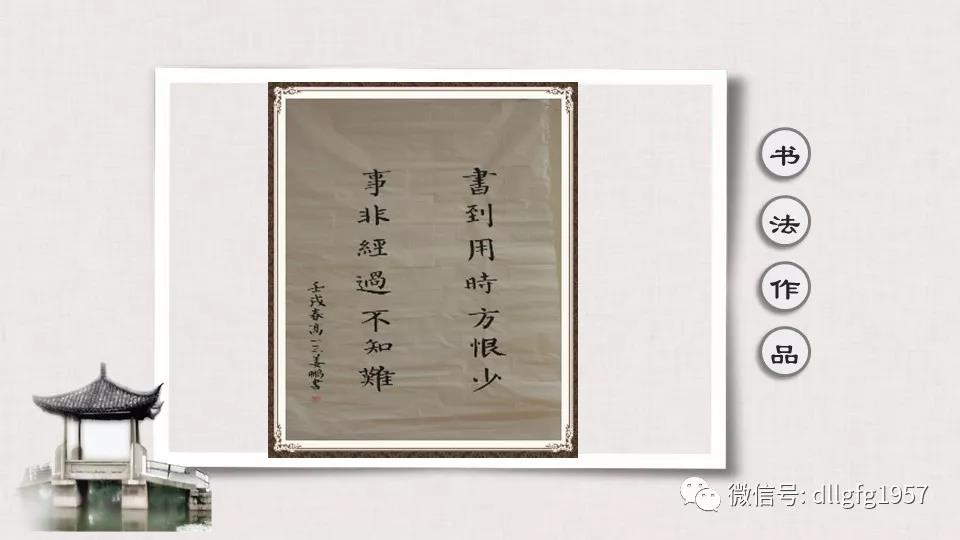 書到用時方恨少
事非經過不知難
壬戌春高一三姜鹏書
书法作品
微信号: dllgfg1957